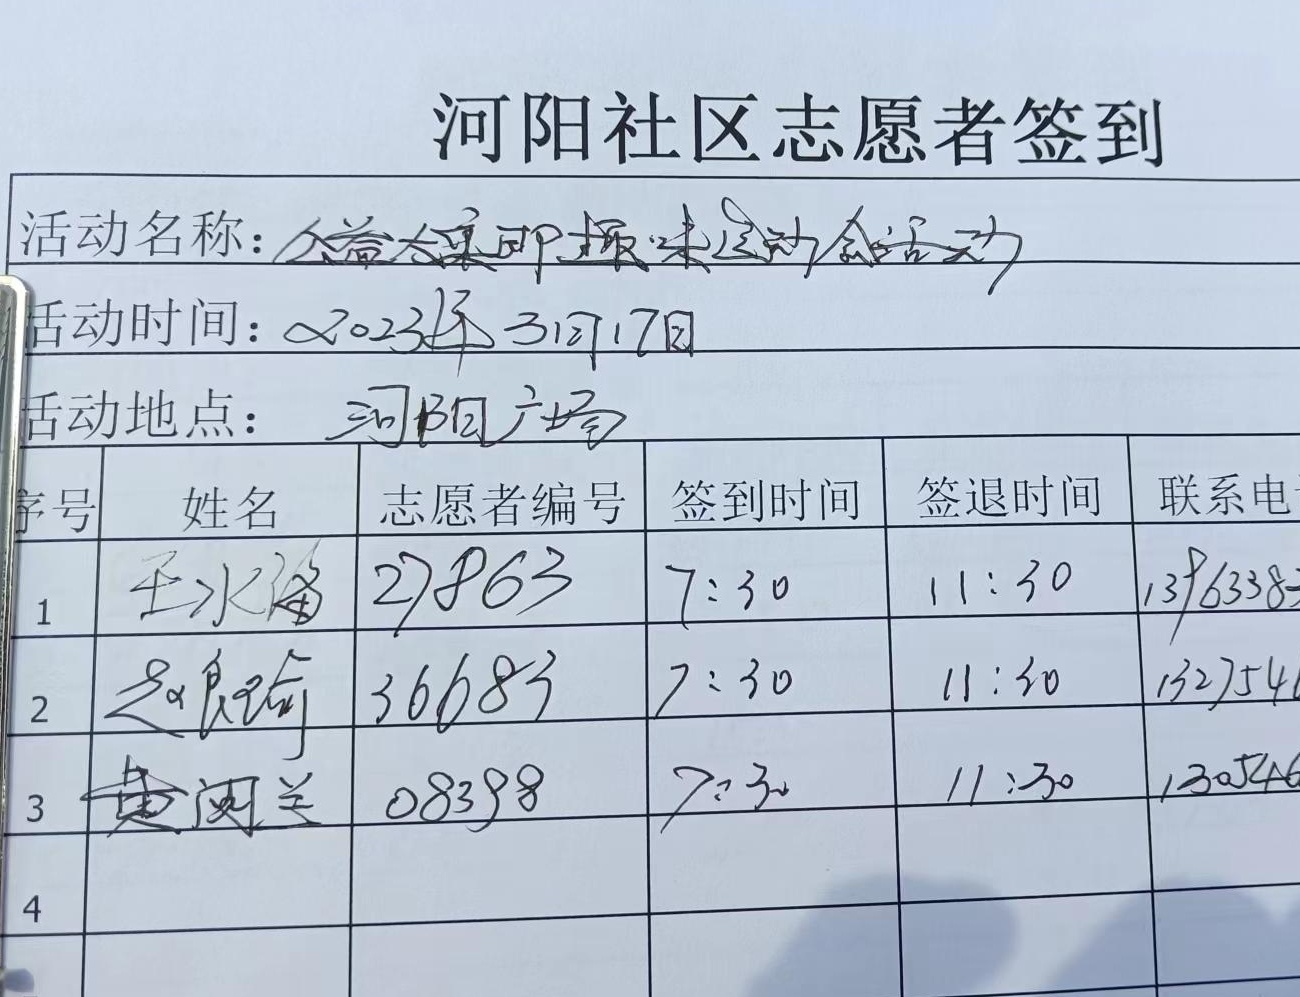 河阳社区志愿者签到
活动名称：公益大集即趣味运动会活动
活动时间：2023年3月17日
活动地点：河阳广场
序号 姓名 志愿者编号 签到时间 签退时间 联系电
1 王水海 27863 7:30 11:30 1396338
2 36683 7:30 11:30 1327546
3 黄闽兰 08398 7:30 11:30 130546
4